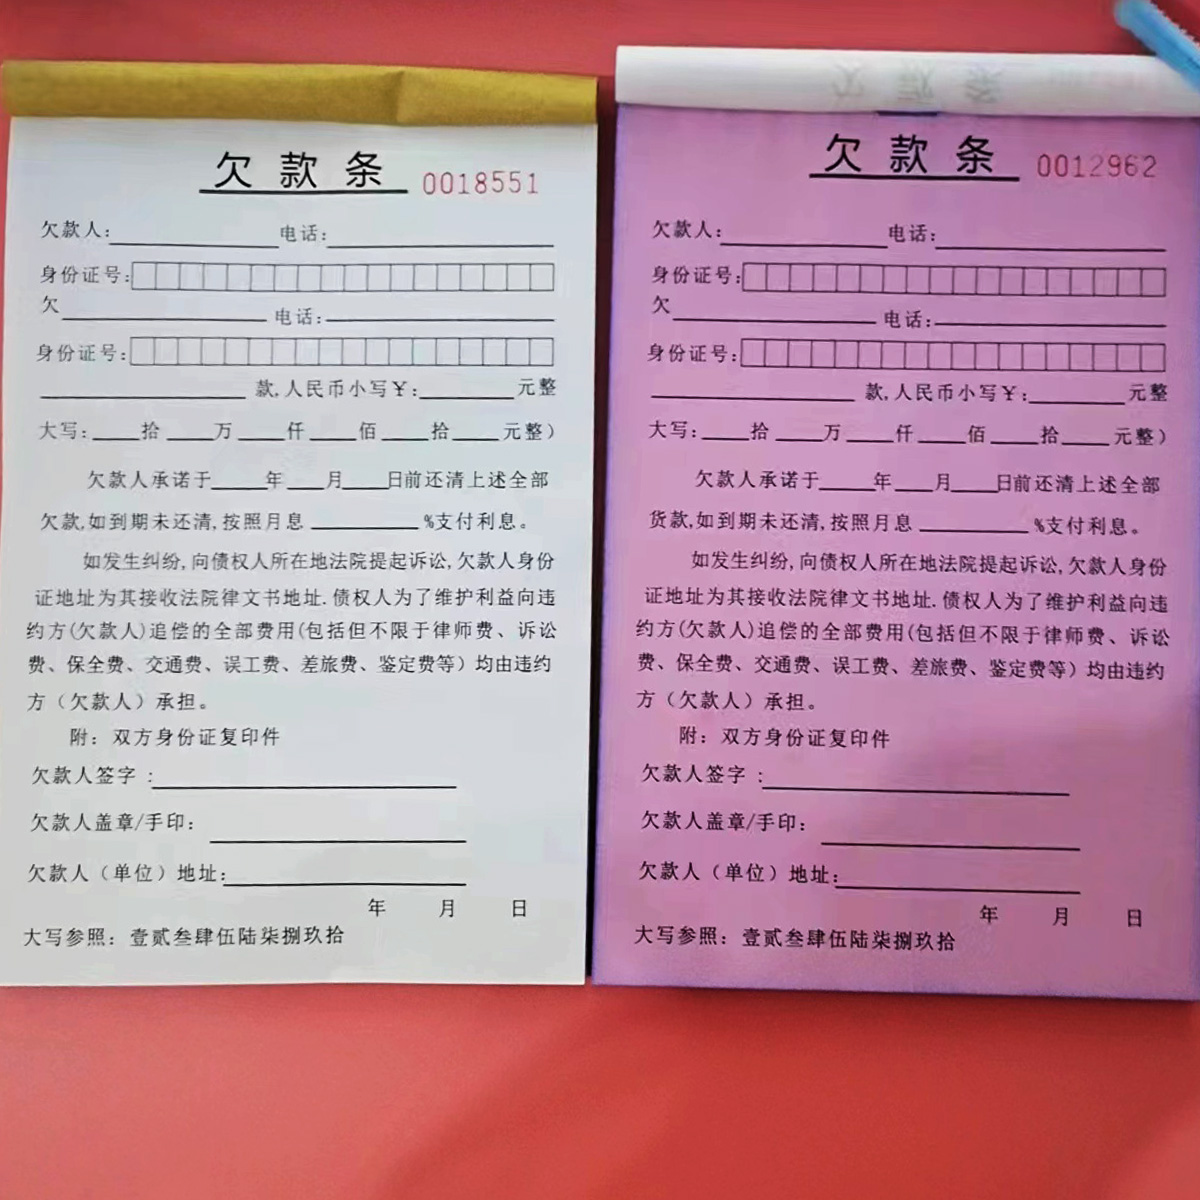 欠款条 0018551
欠款人: 电话:
身份证号:
欠 电话:
身份证号:
款,人民币小写¥: 元整
大写: 拾 万 仟 佰 拾 元整）
欠款人承诺于 年 月 日前还清上述全部
欠款,如到期未还清,按照月息 %支付利息。
如发生纠纷,向债权人所在地法院提起诉讼,欠款人身份
证地址为其接收法院律文书地址.债权人为了维护利益向违
约方(欠款人)追偿的全部费用(包括但不限于律师费、诉讼
费、保全费、交通费、误工费、差旅费、鉴定费等）均由违约
方（欠款人）承担。
附: 双方身份证复印件
欠款人签字 :
欠款人盖章/手印:
欠款人（单位）地址:
年 月 日
大写参照: 壹贰叁肆伍陆柒捌玖拾
欠款条 0012962
欠款人: 电话:
身份证号:
欠 电话:
身份证号:
款,人民币小写¥: 元整
大写: 拾 万 仟 佰 拾 元整）
欠款人承诺于 年 月 日前还清上述全部
货款,如到期未还清,按照月息 %支付利息。
如发生纠纷,向债权人所在地法院提起诉讼,欠款人身份
证地址为其接收法院律文书地址.债权人为了维护利益向违
约方(欠款人)追偿的全部费用(包括但不限于律师费、诉讼
费、保全费、交通费、误工费、差旅费、鉴定费等）均由违约
方（欠款人）承担。
附: 双方身份证复印件
欠款人签字 :
欠款人盖章/手印:
欠款人（单位）地址:
年 月 日
大写参照: 壹贰叁肆伍陆柒捌玖拾